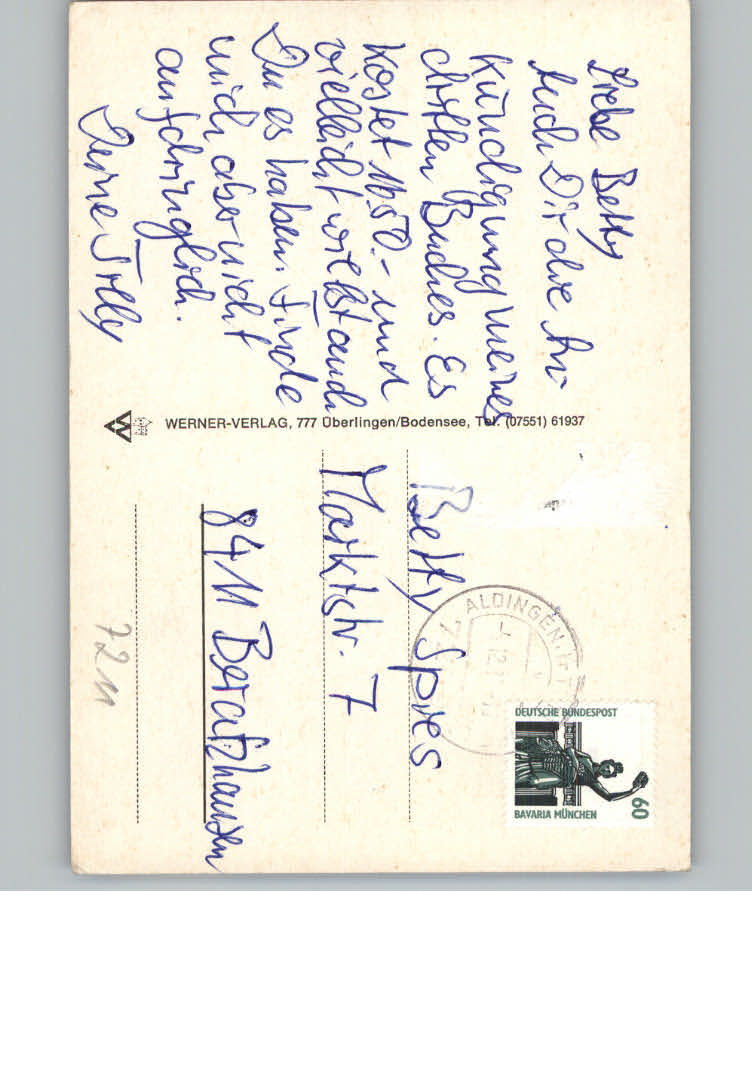 Liebe Betty
Auch Dir die An-
kündigung meines
dritten Buches. Es
kostet 16.50.- und
vielleicht willst auch
Du es haben. Finde
mich aber nicht
aufdringlich.
Deine Tilly
WERNER-VERLAG, 777 Überlingen/Bodensee, Tel. (07551) 61937
Betty Spies
Marktstr. 7
8411 Beratzhausen
7211
ALDINGEN
DEUTSCHE BUNDESPOST
BAVARIA MÜNCHEN
60